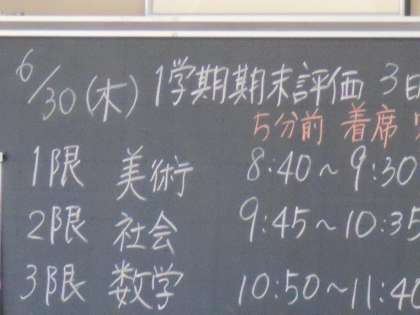 6/30(木) 1学期期末評価 3日
5分前 着席
1限 美術 8:40~9:30
2限 社会 9:45~10:35
3限 数学 10:50~11:40